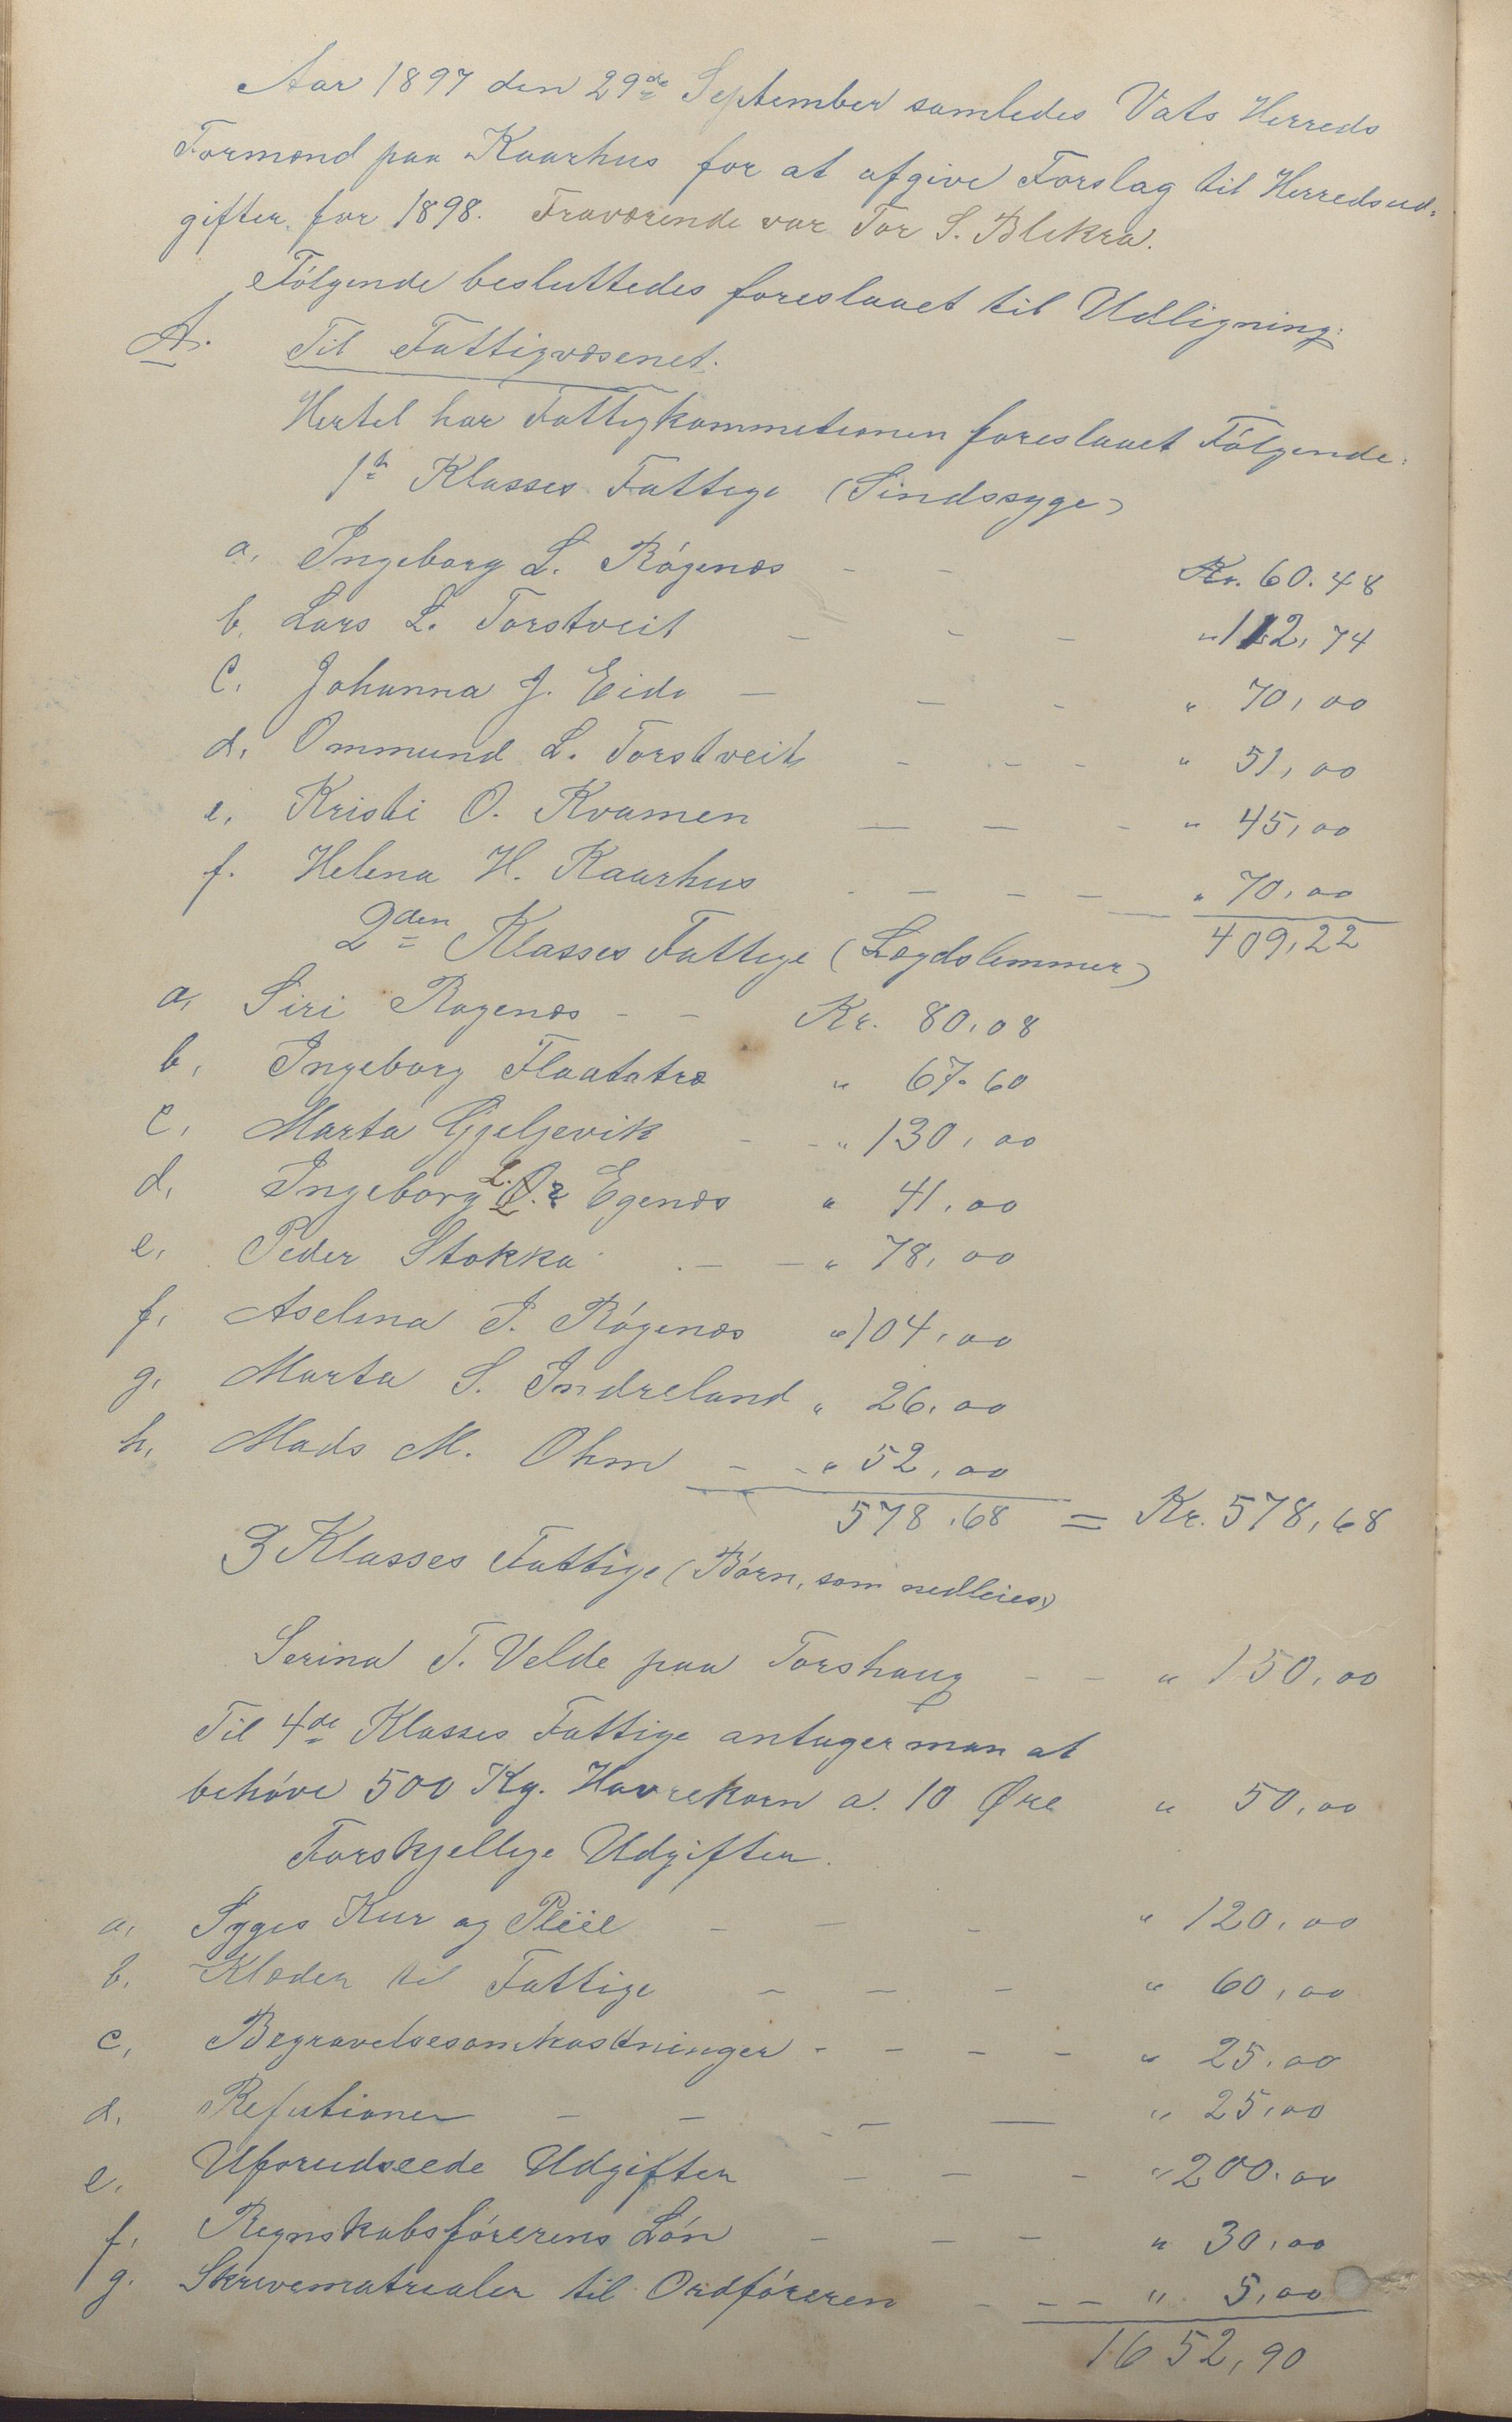 Aar 1897 den 29de September samledes Vats Herreds
Formænd paa Kaarhus for at afgive Forslag til Herredsud-
gifter for 1898. Fraværende var Tor S. Blikra.
Følgende besluttedes foreslaaet til Udligning:
A. Til Fattigvæsenet.
Hertil har Fattigkommetionen foreslaaet Følgende:
1ste Klasses Fattige (Sindssyge)
a, Ingeborg L. Røgenæs - - Kr. 60.48
b, Lars L. Torstveit - - - " 112,74
C, Johanna J. Eide - - - " 70,00
d, Ommund L. Torstveit - - - " 51,00
e, Kristi O. Kvamen - - - " 45,00
f. Helena H. Kaarhus - - - - " 70,00
409,22
2den Klasses Fattige (Lægdslemmer)
a, Siri Ragenæs - - Kr. 80,08
b, Ingeborg Flaatatræ " 67.60
C, Marta Gjeljevik - - " 130,00
d, Ingeborg L. Egenæs " 41,00
e, Peder Stokka - - " 78,00
f, Aselina I. Røgenæs " 104,00
g, Marta S. Indreland " 26,00
h, Mads M. Ohm - - " 52,00
578,68 = Kr. 578,68
3 Klasses Fattige (Børn, som nedleies)
Serina T. Velde paa Torshaug - - " 150,00
Til 4de Klasses Fattige antager man at
behøve 500 Kg. Havrekorn a. 10 Øre " 50,00
Forskjellige Udgifter.
a, Syges Kur og Pleie - - - " 120,00
b. Klæder til Fattige - - - " 60,00
c, Begravelsesomkostninger - - - - " 25,00
d. Refutioner - - - - " 25,00
e. Uforudseede Udgifter - - - " 200.00
f, Regnskabsførerens Løn - - - " 30,00
g. Skrivematrialer til Ordføreren - - - " 5,00
1652,90